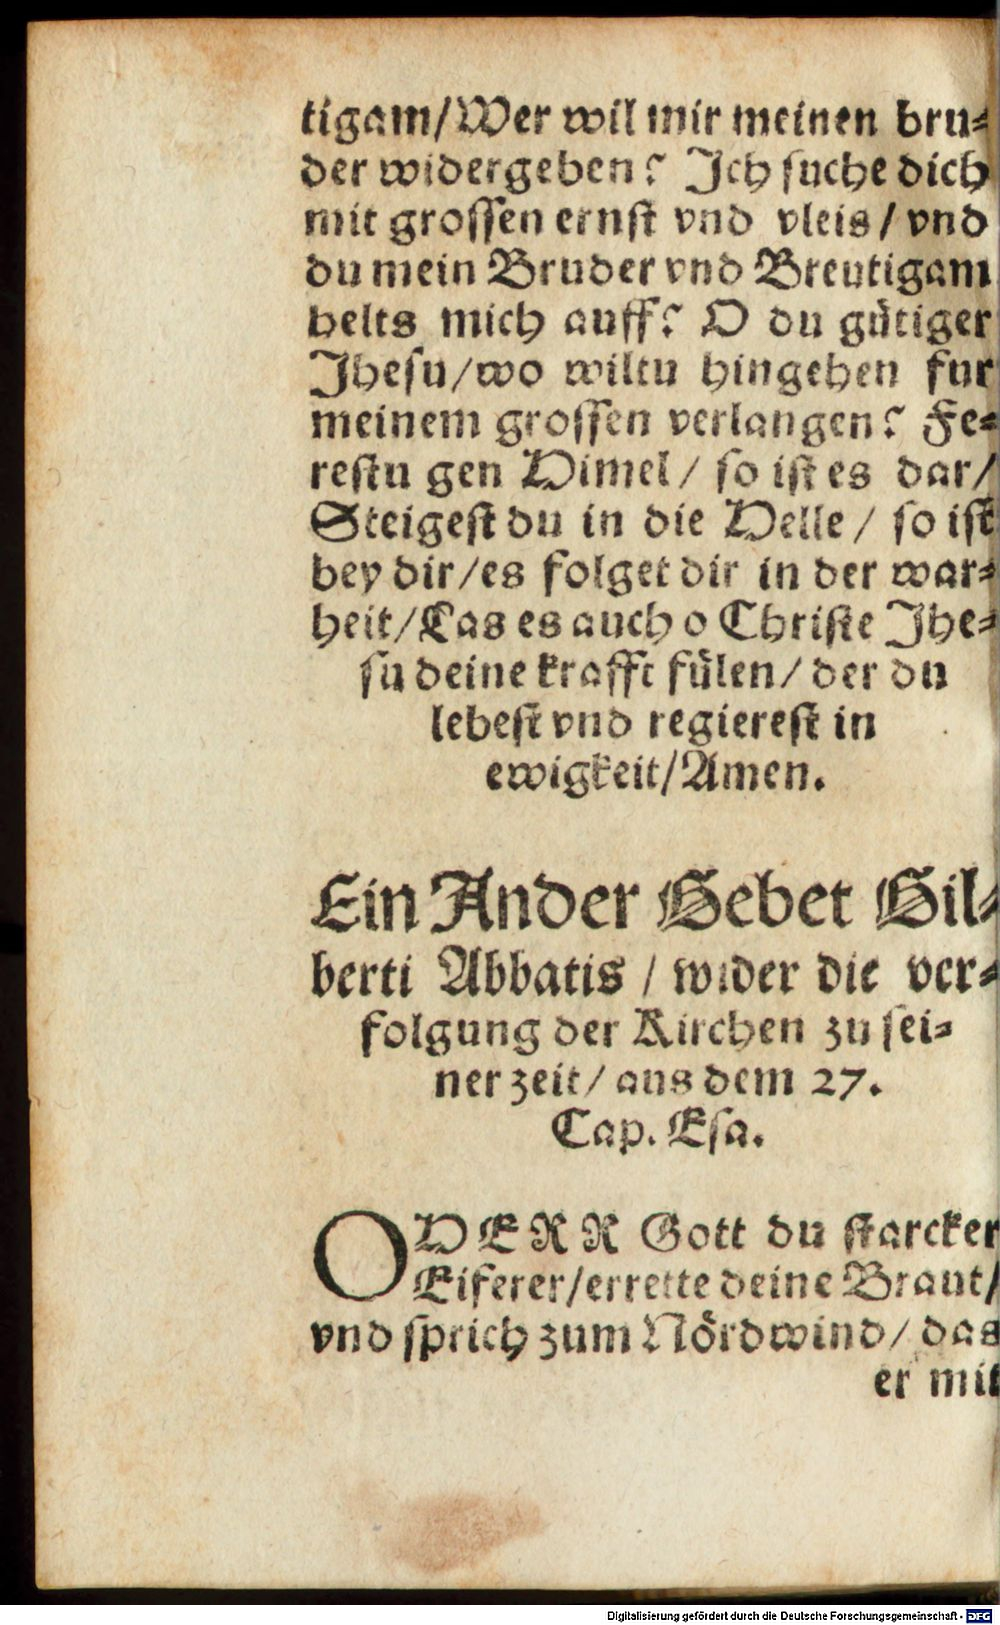 tigam/Wer wil mir meinen bru⸗
der widergeben? Ich ſuche dich
mit groſſen ernſt vnd vleis/ vnd
du mein Bruder vnd Breutigam
helts mich auff? O du gütiger
Jheſu/wo wiltu hingehen fur
meinem groſſen verlangen? Fe⸗
reſtu gen Himel/ ſo iſt es dar/
Steigeſt du in die Helle/ ſo iſt
bey dir/es folget dir in der war⸗
heit/Las es auch o Chriſte Jhe⸗
ſu deine krafft fülen/ der du
lebeſt vnd regiereſt in
ewigkeit/Amen.
Ein Ander Gebet Gil⸗
berti Abbatis/ wider die ver⸗
folgung der Kirchen zu ſei⸗
ner zeit/ aus dem 27.
Cap. Eſa.
O HERR Gott du ſtarcker
Eiferer/errette deine Braut/
vnd ſprich zum Nördwind/ das
er mit
Digitalisierung gefördert durch die Deutsche Forschungsgemeinschaft - DFG